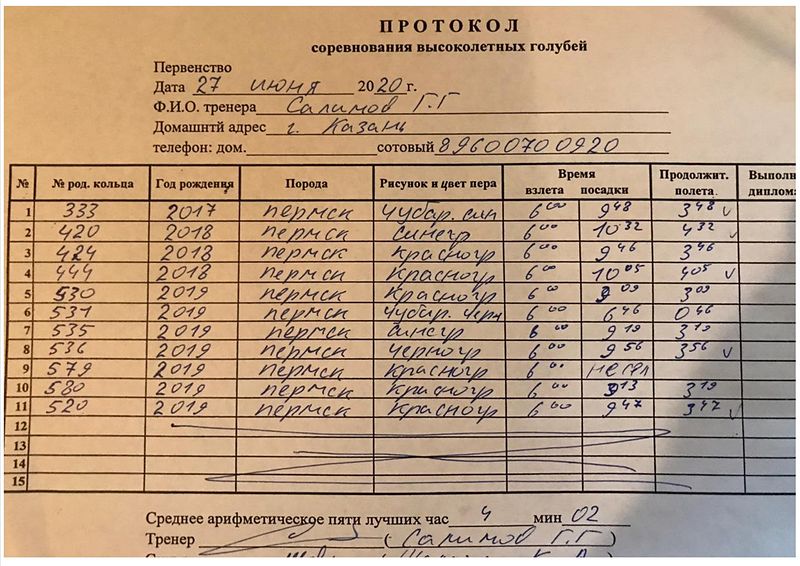 ПРОТОКОЛ
соревнования высоколетных голубей
Первенство
Дата 27 июня 2020 г.
Ф.И.О. тренера Салимов Г.Г
Домашнтй адрес г. Казань
телефон: дом. сотовый 89600700920
№ № род. кольца Год рождения Порода Рисунок и цвет пера Время взлета посадки Продолжит. полета Выполн диплома
1 333 2017 пермск чубар. син 6 00 9 48 3 48 ✓
2 420 2018 пермск синегр 6 00 10 32 4 32 ✓
3 424 2018 пермск красногр 6 00 9 46 3 46
4 444 2018 пермск красногр 6 00 10 05 4 05 ✓
5 530 2019 пермск красногр 6 00 9 09 3 09
6 531 2019 пермск чубар. черн 6 00 6 46 0 46
7 535 2019 пермск синегр 6 00 9 19 3 19
8 536 2019 пермск черногр 6 00 9 56 3 56 ✓
9 579 2019 пермск красногр 6 00 не сел
10 580 2019 пермск красногр 6 00 3 19
11 520 2019 пермск красногр 6 00 9 47 3 47 ✓
12
13
14
15
Среднее арифметическое пяти лучших час 4 мин 02
Тренер (Салимов Г.Г)